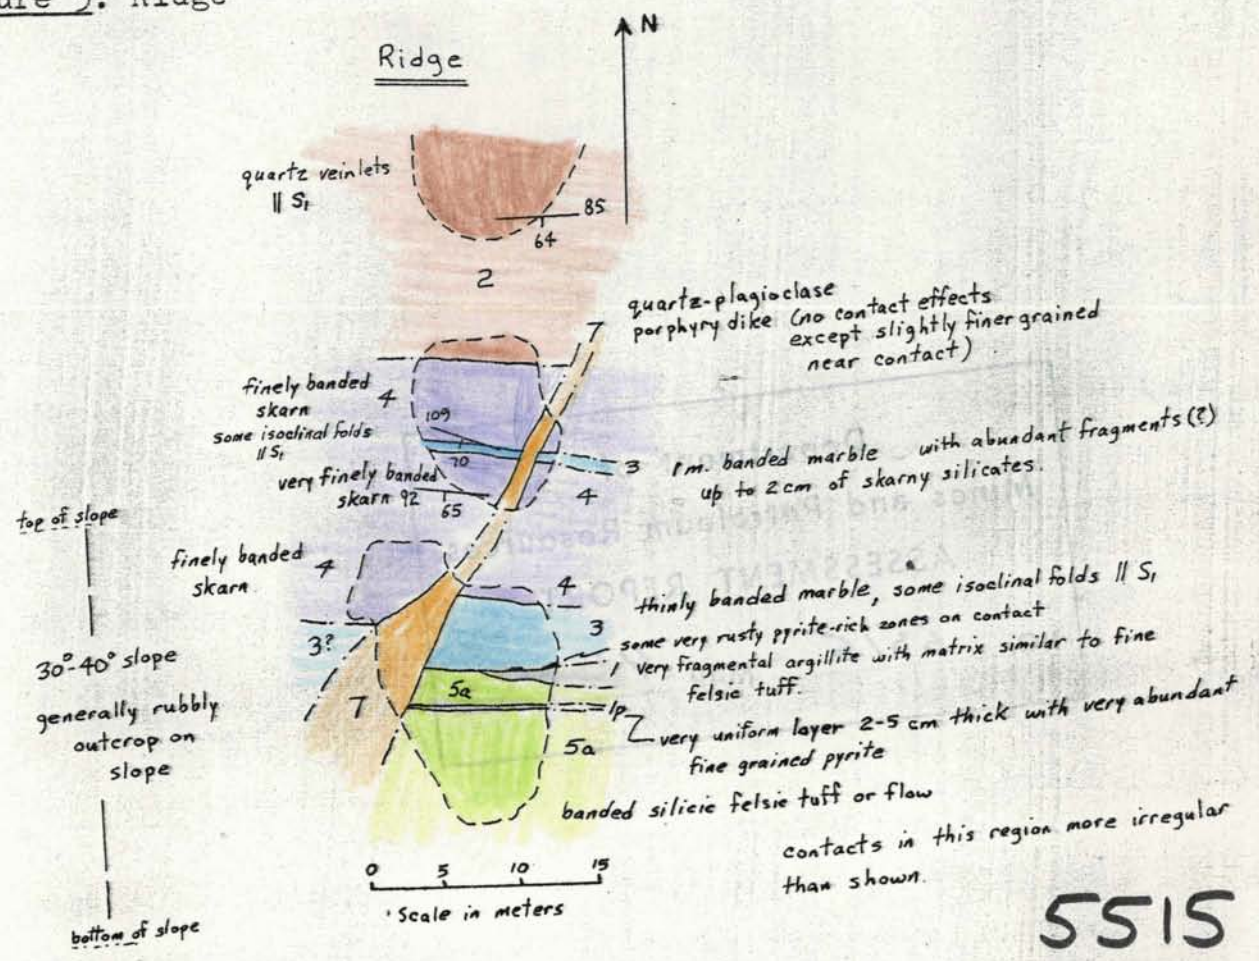 ure 5. Ridge
N
Ridge
quartz veinlets
|| S₁
85
64
2
quartz-plagioclase
porphyry dike (no contact effects
except slightly finer grained
near contact)
7
finely banded
skarn
4
some isoclinal folds
|| S₁
109
70
3
1m. banded marble with abundant fragments (?)
up to 2 cm of skarny silicates.
very finely banded
skarn 92
65
4
top of slope
finely banded
skarn
4
4
thinly banded marble, some isoclinal folds || S₁
3
some very rusty pyrite-rich zones on contact
3?
1
very fragmental argillite with matrix similar to fine
felsic tuff.
30°-40° slope
generally rubbly
outcrop on
slope
7
5a
1p
very uniform layer 2-5 cm thick with very abundant
fine grained pyrite
5a
banded silicic felsic tuff or flow
contacts in this region more irregular
than shown.
0 5 10 15
Scale in meters
bottom of slope
5515
Department
Mines and Petroleum Resources
ASSESSMENT REPORT